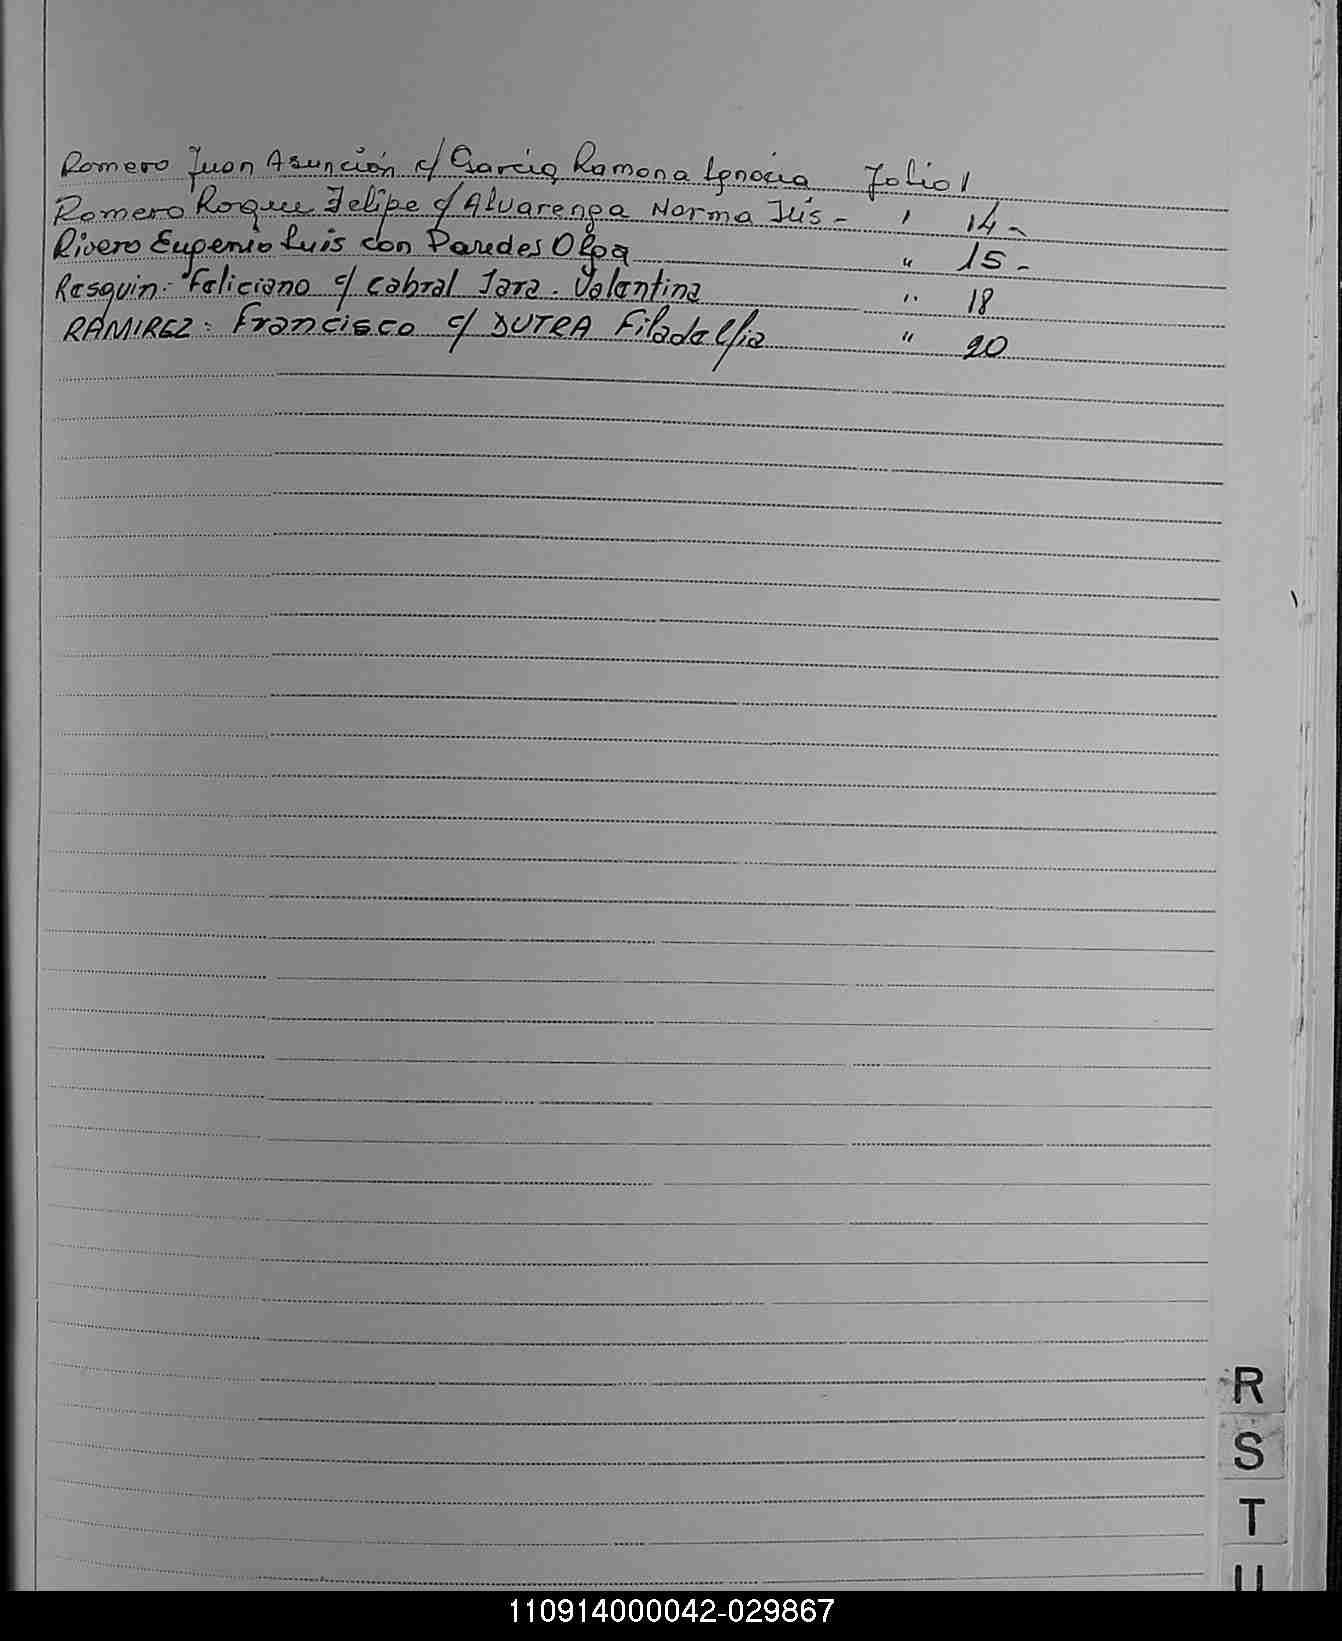 Romero Juan Asunción c/ Garcia Ramona Ignacia Folio 1
Romero Roque Felipe c/ Alvarenga Norma Iris - " 14 -
Rivero Eugenio Luis con Paredes Olga " 15 -
Resquin. Feliciano c/ Cabral Jara. Valentina " 18
RAMIREZ: Francisco c/ DUTRA Filadelfia " 20
R
S
T
U
110914000042-029867